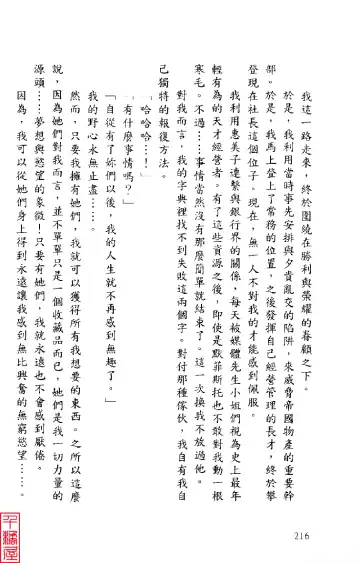 我這一路走來，終於圍繞在勝利與榮耀的眷顧之下。
於是，我利用當時事先安排與夕貴亂交的陷阱，來威脅帝國物產的重要幹
部。於是，我馬上登上了常務的位置，之後發揮自己經營管理的長才，終於攀
登現在社長這個位子。現在，無一人不對我的才能感到佩服。
我利用惠美子連繫與銀行界的關係，每天被媒體先生小姐們視為史上最年
輕有為的天才經營者。有了這些資源之後，即使是默菲斯托也不敢對我動一根
寒毛。不過……事情當然沒有那麼簡單就結束了。這一次換我不放過他。
對我而言，我的字典裡找不到失敗這兩個字。對付那種傢伙，我自有我自
己獨特的報復方法。
「哈哈哈…！」
「有什麼事情嗎？」
「自從有了妳們以後，我的人生就不再感到無趣了。」
我的野心永無止盡……。
然而，只要我擁有她們，我就可以獲得所有我想要的東西。之所以這麼
說，因為她們對我而言，並不單單只是一個收藏品而已，她們是我一切力量的
源頭……夢想與慾望的象徵！只要有她們，我就永遠也不會感到厭倦。
因為，我可以從她們身上得到永遠讓我感到無比興奮的無窮慾望……。
216